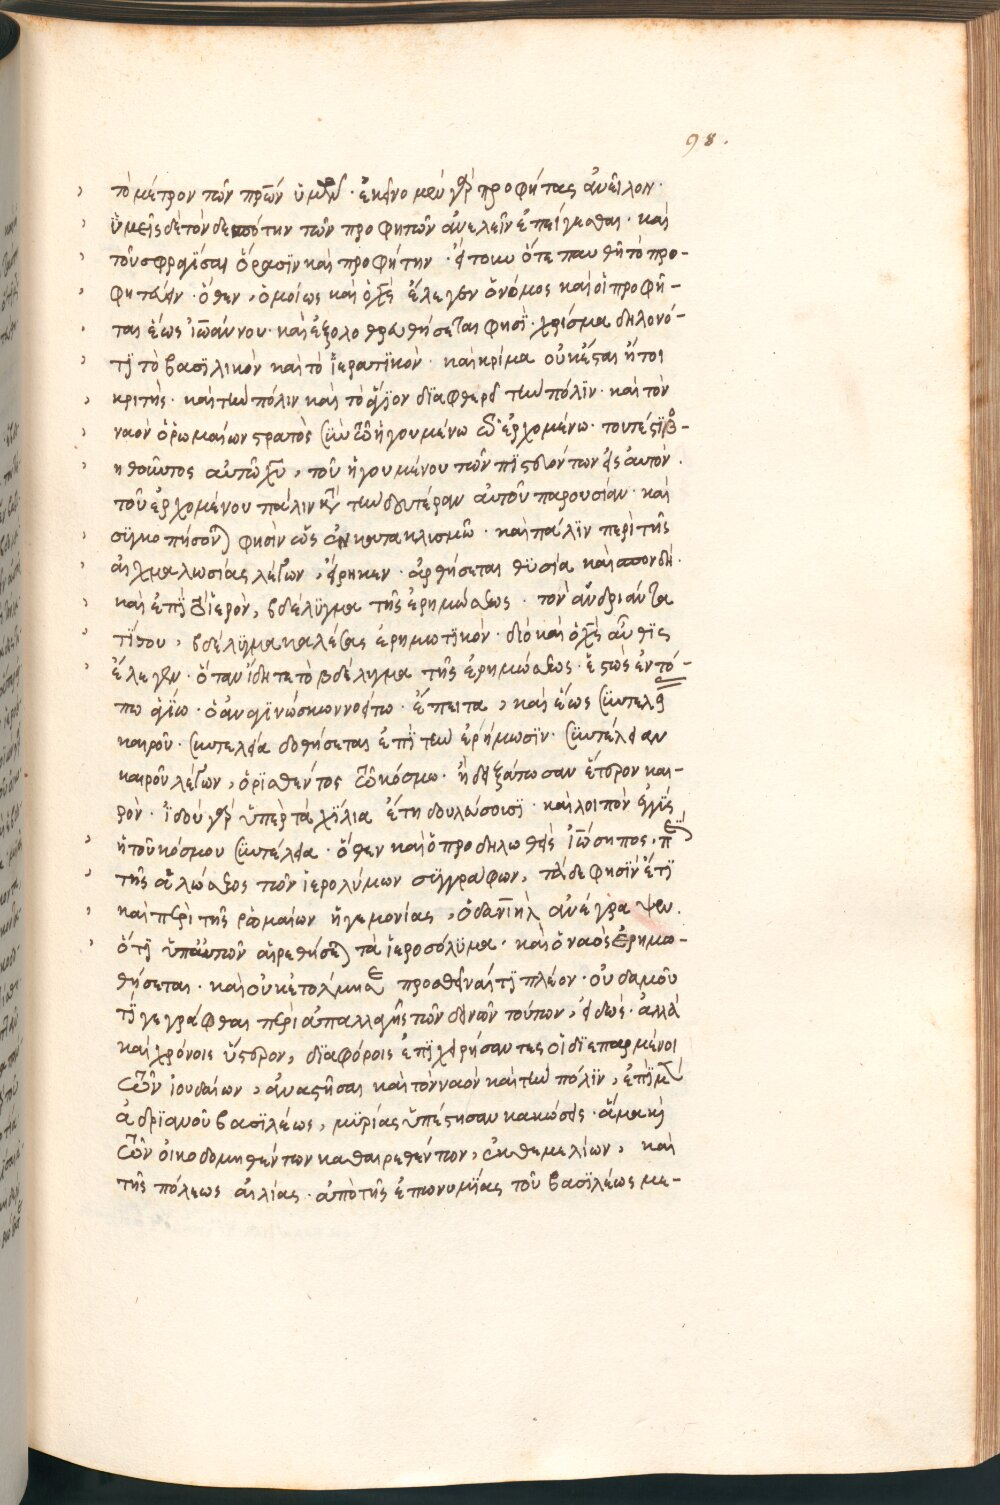 98.
τὸ μέτρον τῶν πρῶν ὑμῶν · ἐκεῖνο μὲν γὰρ προφήτας ἀνεῖλον ·
ὑμεῖς δὲ τὸν δεσπότην τῶν προφητῶν ἀνελεῖν ἐπείγεσθαι · καὶ
τοῦ σφραγίσαι ὅρασϊν καὶ προφήτην · ὅτε παυθῆ τὸ προ-
φητεύειν · ὅθεν, ὁμοίως καὶ ὁ χς ἔλεγεν ὁ νόμος καὶ οἱ προφῆ-
ται ἕως ἰωάννου · καὶ ἐξολοθρευθήσεται φησϊ · χρίσμα δηλονό-
τϊ τὸ βασϊλικὸν καὶ τὸ ἱερατϊκὸν · καὶ κρίμα οὐκ ἔσται ἤτοι
κριτὴς · καὶ τὴν πόλιν καὶ τὸ ἅγϊον δϊαφθερεῖ τὴν πόλϊν · καὶ τὸν
ναὸν ὁ ῥωμαίων στρατὸς σὺν τῶ ἡγουμένω τῶ ἐρχομένω · τουτέστϊ β-
οηθοῦντος αὐτῶ χυ, τοῦ ἡγουμένου τῶν πϊστευόντων εἰς αὐτὸν ·
τοῦ ἐρχομένου πάλιν κατὰ τὴν δευτέραν αὐτοῦ παρουσίαν · καὶ
συγκοπήσονται φησὶν ὡς ἐν κατακλισμῶ · καὶ πάλϊν περὶ τῆς
αἰχμαλωσίας λέγων, εἴρηκεν · ἀρθήσεται θϋσία καὶ σπονδὴ ·
καὶ ἐπῒ τὸ ἱερὸν, βδέλϋγμα τῆς ἐρημώσεως · τὸν ἀνδριάντα
τϊτου, βδέλϋγμα καλέσας ἐρημωτϊκόν · διὸ καὶ ὁ χς αὖθϊς
ἔλεγεν · ὅταν ἴδητε τὸ βδέλυγμα τῆς ἐρημώσεως · ἑστὼς ἐν τό-
πω ἁγϊω · ὁ ἀναγϊνώσκων νοείτω · ἔπειτα, καὶ ἕως συντελείας
καιροῦ · συντελεία δοθήσεται ἐπῒ τὴν ἐρήμωσϊν · συντέλειαν
καιροῦ λέγων, ὁρϊσθέντος τῶ κόσμω · ἢ δειξάτωσαν ἕτερον και-
ρὸν · ἰδοὺ γὰρ ὑπὲρ τὰ χϊλια ἔτη δουλεύουσϊ · καὶ λοιπὸν ἐγγϊς
ἡ τοῦ κόσμου συντέλεια · ὅθεν καὶ ὁ προδηλωθεὶς ἰώσηπος, περὶ
τῆς ἁλώσεως τῶν ἱερολύμων συγγράφων, τάδε φησϊν ἔτϊ
καὶ περὶ τῆς ῥωμαίων ἡγεμονίας, ὁ δανιὴλ ἀνέγραψεν ·
ὅτϊ ὑπ' αὐτῶν αἱρεθήσεται τὰ ἱεροσόλϋμα · καὶ ὁ ναὸς ἐρημω-
θήσεται · καὶ οὐκ ἐτόλμησε προσθεῖναί τϊ πλέον · οὐδαμοῦ
τϊ γεγράφθαι περὶ ἀπαλλαγῆς τῶν δεινῶν τούτων, εἰδὼς · ἀλλὰ
καὶ χρόνοις ὕστερον, δϊαφόροις ἐπϊχειρήσαντες οἱ δϊεπαρμένοι
τῶν ἰουδαίων, ἀναστῆσαι καὶ τὸν ναὸν καὶ τὴν πόλϊν, ἐπῒ μὲν
ἀδρϊανοῦ βασϊλέως, μϋρίας ὑπέστησαν κακώσεις · ἅμα καὶ
τῶν οἰκοδομηθέντων καθαιρεθέντων, ἐκ θεμελίων, καὶ
τῆς πόλεως αἰλίας · ἀπὸ τῆς ἐπωνυμϊας τοῦ βασϊλέως με-